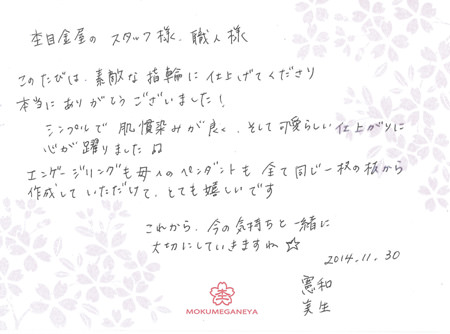 杢目金屋の スタッフ様、職人様
このたびは、素敵な指輪に仕上げてくださり
本当にありがとうございました！
シンプルで肌慣染みが良く、そして可愛らしい仕上がりに
心が躍りました♫
エンゲージリングも母へのペンダントも全て同じ一枚の板から
作成していただけて、とても嬉しいです
これから、今の気持ちと一緒に
大切にしていきますね☆
2014.11.30
憲和
美生
MOKUMEGANEYA